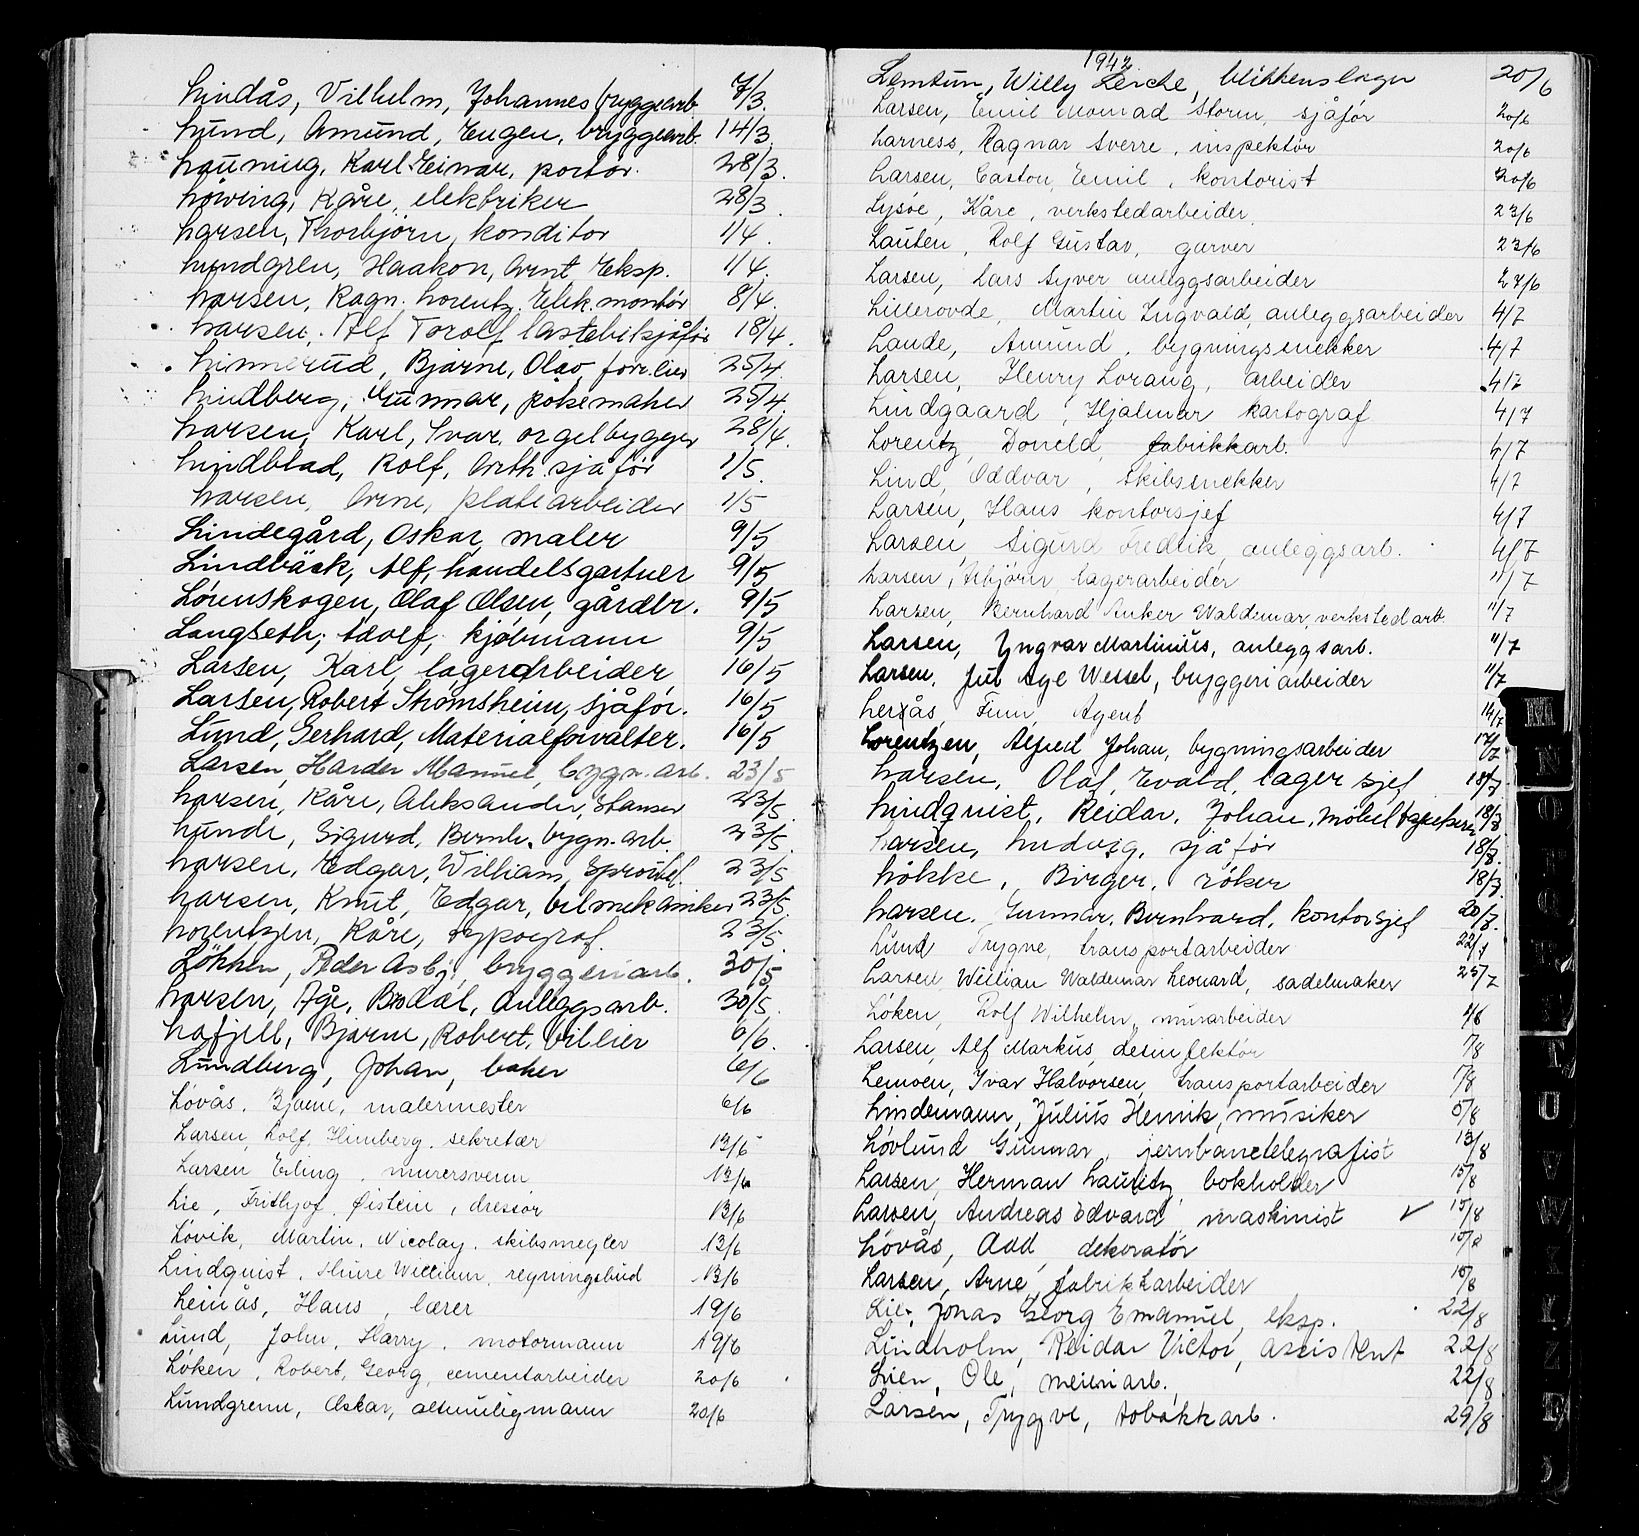 Lindås, Vilhelm, Johannes bryggearb. 7/3.
Lund, Amund, Eugen, bryggearb. 14/3
Launing, Karl Einar, portør. 28/3.
Løwing, Kåre, elektriker 28/3.
Larsen, Thorbjørn, konditor 1/4.
Lundgren, Haakon, Arnt Eksp. 1/4.
Larsen, Ragn. Lorentz, Elek.montør 8/4.
Larsen, Alf Torolf lastebilsjåfør 18/4.
Linnerud, Bjarne, Olav, forr.lier 25/4.
Lindberg, Gunnar, pølsemaker 25/4.
Larsen, Karl, Ivar, orgelbygger 28/4.
Lindblad, Rolf, Arth. sjåfør 1/5.
Larsen, Arne, platearbeider 1/5
Lindegård, Oskar, maler 9/5
Lindbäck, Alf, handelsgartner 9/5
Lørenskogen, Olaf Olsen, gårdbr. 9/5
Langseth, Adolf, kjøbmann 9/5
Larsen, Karl, lagerarbeider 16/5
Larsen, Robert Strømsheim, sjåfør. 16/5
Lund, Gerhard, Materialforvalter. 16/5
Larsen, Harder Manuel, bygn. arb. 23/5
Larsen, Kåre, Aleksander, Stanser 23/5.
Lunde, Sigurd, Bernh. bygn. arb. 23/5.
Larsen, Edgar, William, 23/5
Larsen, Knut, Edgar, bilmekaniker 23/5.
Lorentzen, Kåre, typograf. 23/5.
Løkken, Peder Asbj, bryggeriarb. 30/5
Larsen, Åge, Brodal, anleggsarb. 30/5.
Lafjell, Bjarne, Robert, bileier 6/6.
Lundberg, Johan, baker 6/6
Løvås, Bjarne, malermester 6/6
Larsen, Rolf, Himberg, sekretær 13/6
Larsen, Erling, murersvenn 13/6
Lie, Frithjof, Øistein, dressør 13/6
Løvik, Martin, Nicolay, skibsmegler 13/6
Lindquist, Hure William, regningsbud 13/6
Leinås, Hans, lærer 19/6
Lund, John, Harry, motormann 19/6
Løken, Robert, Georg, cementarbeider 20/6
Lundgrenn, Oskar, altmuligmann 20/6
1942
Lemtun, Willy Lerche, blikkenslager 20/6
Larsen, Emil Monrad Storm, sjåfør 20/6
Larness, Ragnar Sverre, inspektør 20/6
Larsen, Caston, Emil, kontorist 20/6
Lysøe, Kåre, verkstedarbeider. 23/6
Lauten, Rolf Gustav, garver 23/6
Larsen, Lars Syver anleggsarbeider 27/6
Lillerovde, Martin Ingvald, anleggsarbeider 4/7
Lande, Amund, bygningssnekker 4/7
Larsen, Henry Lorang, arbeider 4/7
Lindgaard, Hjalmar kartograf 4/7
Lorentz, Doneld, fabrikkarb. 4/7
Lind, Oddvar, Skibssnekker 4/7
Larsen, Hans kontorsjef 4/7
Larsen, Sigurd Fredrik, anleggsarb. 4/7
Larsen, Asbjørn lagerarbeider 11/7
Larsen, Bernhard Anker Waldemar, verkstedarb. 11/7
Larsen, Yngvar Martinius, anleggsarb. 11/7
Larsen, Jul Age Wessel, bryggeriarbeider 11/7
Lerås, Finn, Agent 14/7
Lorentzen, Alfred Johan, bygningsarbeider 17/7
Larsen, Olaf, Evald, lagersjef 18/7
Lindquist, Reidar, Johan, Möbeltapetserer 18/7
Larsen, Ludvig, sjåfør 18/7.
Løkke, Birger, røker 18/7
Larsen, Gunnar, Bernhard, kontorsjef 20/7.
Lund Trygve, transportarbeider 22/7
Larsen, William Waldemar Leonard, sadelmaker 25/7
Løken, Rolf Wilhelm, murarbeider 4/8
Larsen, Alf Markus, desinfektør 7/8
Lemoen, Ivar Halvorsen, transportarbeider 7/8
Lindemann, Julius Henrik, musiker 5/8
Løvlund Gunnar, jernbanetelegrafist 13/8
Larsen, Herman Lauritz, bokholder 15/8
Larsen, Andreas Edvard, maskinist ✓ 15/8
Løvås, Odd, dekoratør 15/8
Larsen, Arne, fabrikkarbeider 15/8
Lie, Jonas Georg Emanuel, eksp. 22/8
Lindholm, Reidar Victor, assistent 22/8
Lien, Ole, meieriarb. 22/8
Larsen, Trygve, tobakkarb. 29/8
M
N
O
P
T
U
V
W
X
Y
Z